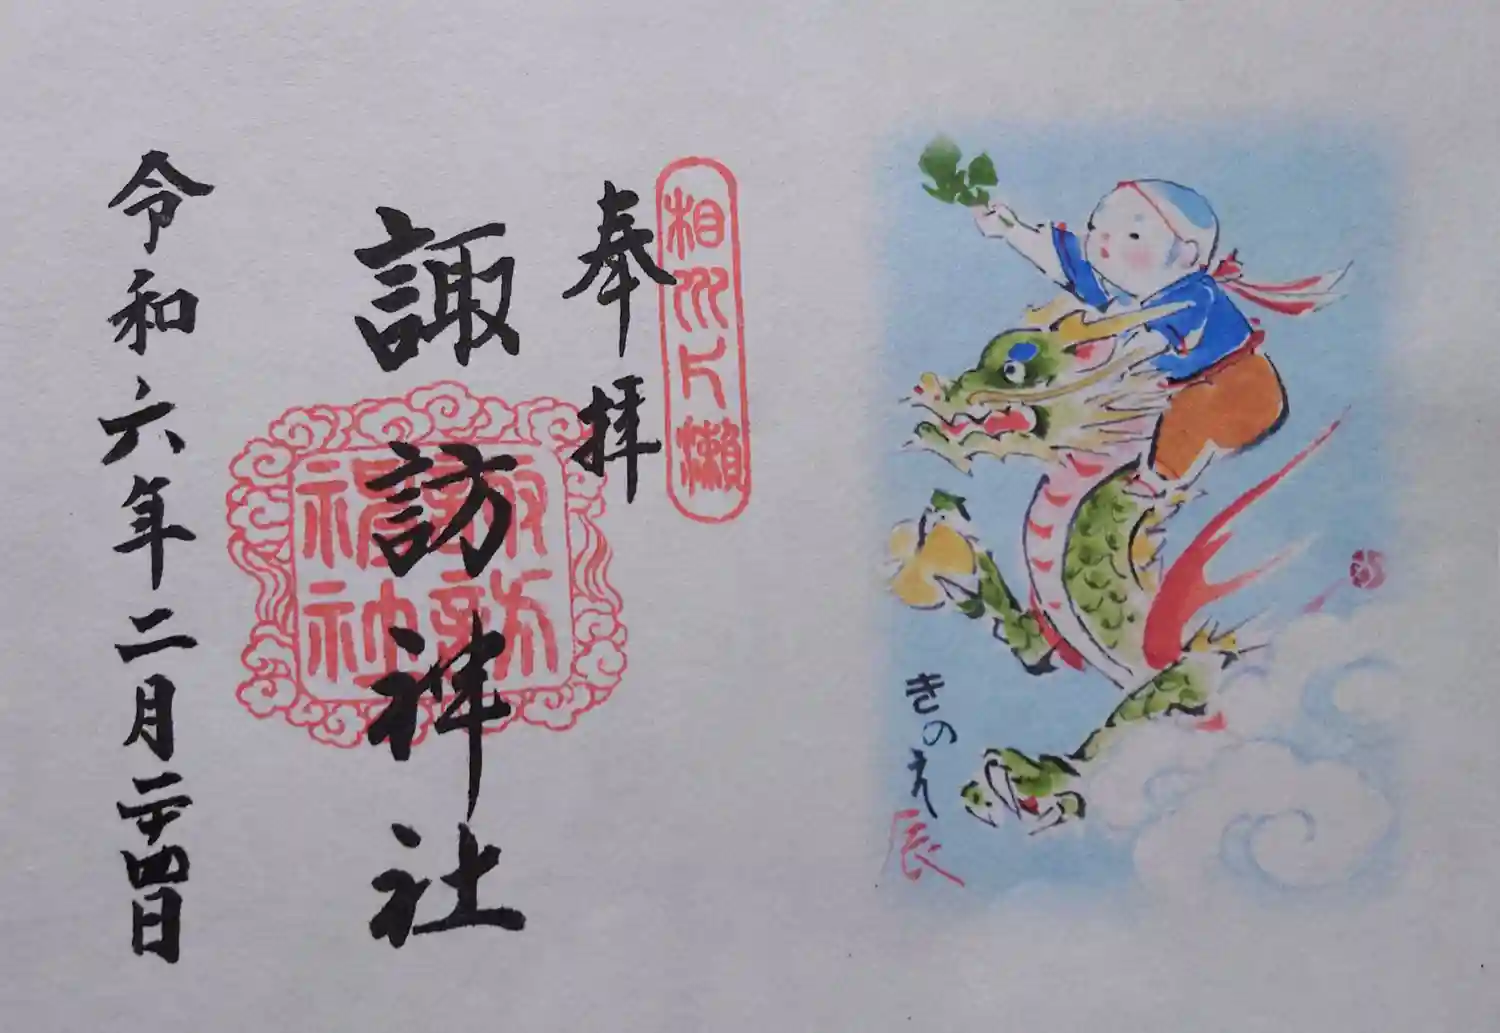 きのえ辰
相州片瀬
奉拝
諏訪神社
令和六年二月二十四日